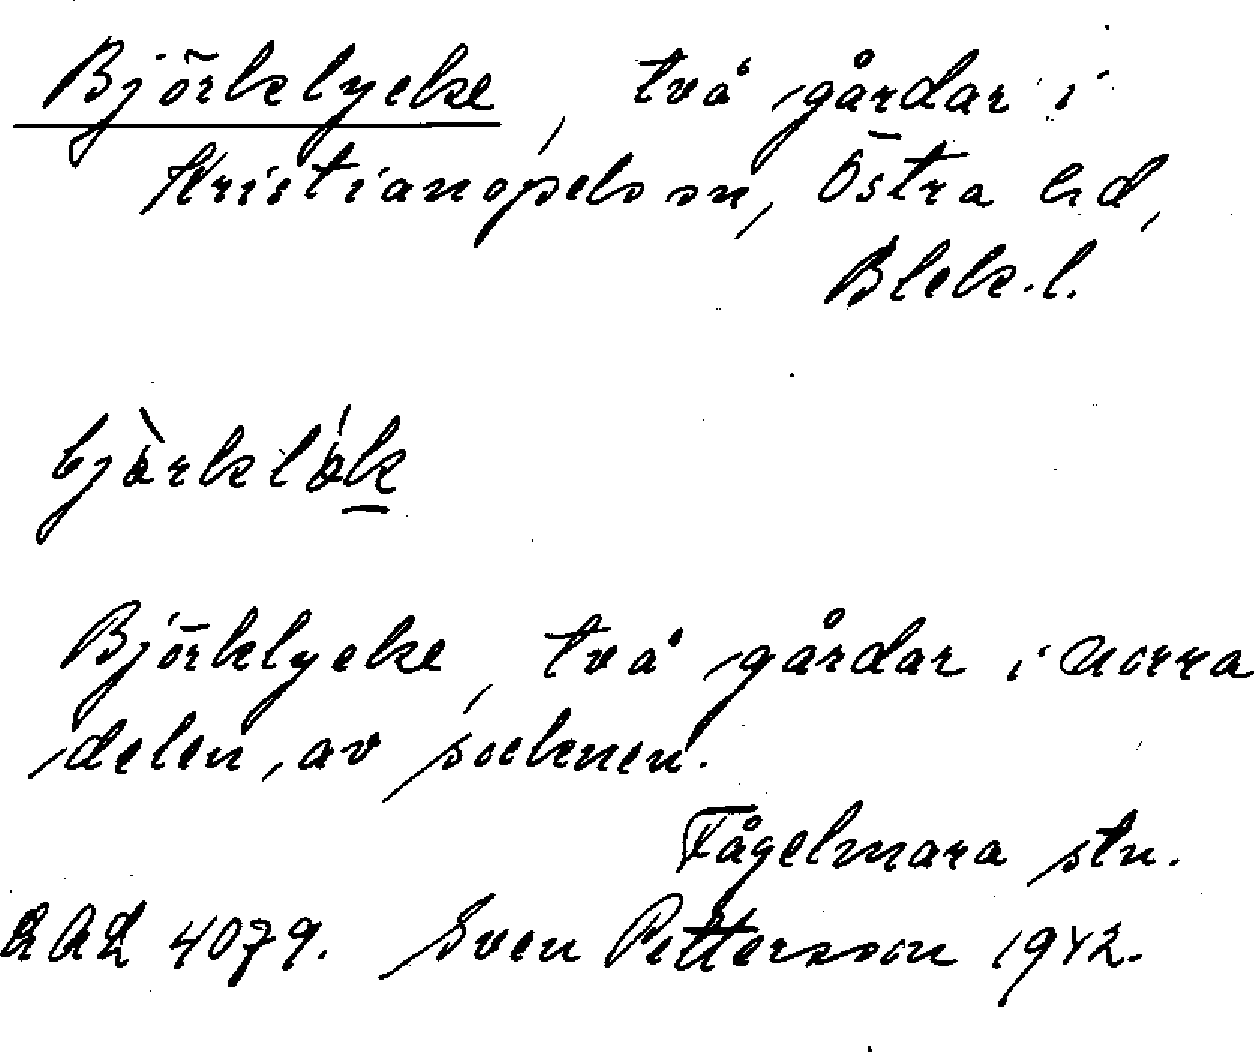 Björklycke, två gårdar i
Kristianopels sn, Östra hd,
Blek. l.
bjö̀rklö́k
Björklycke, två gårdar i norra
delen, av socknen.
Fågelmara stn.
4079. Sven Pettersson 1942.